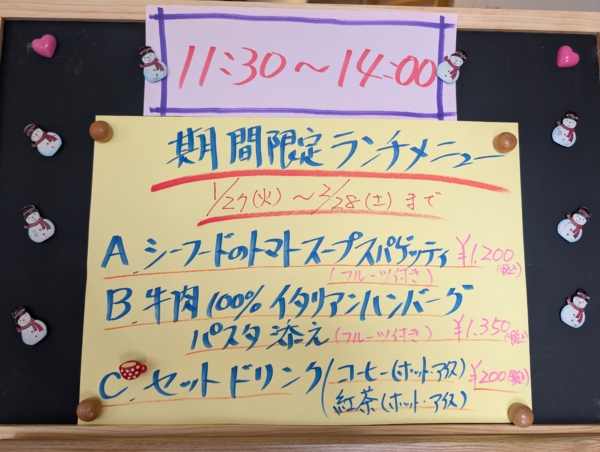 11:30～14:00
期間限定ランチメニュー
1/27(火)～2/28(土)まで
A.シーフードのトマトスープスパゲッティ ¥1.200(税込)
(フルーツ付き)
B.牛肉100%イタリアンハンバーグ
パスタ添え(フルーツ付き) ¥1.350(税込)
C.セットドリンク(コーヒー(ホット・アイス) ¥200(税込)
紅茶(ホット・アイス)